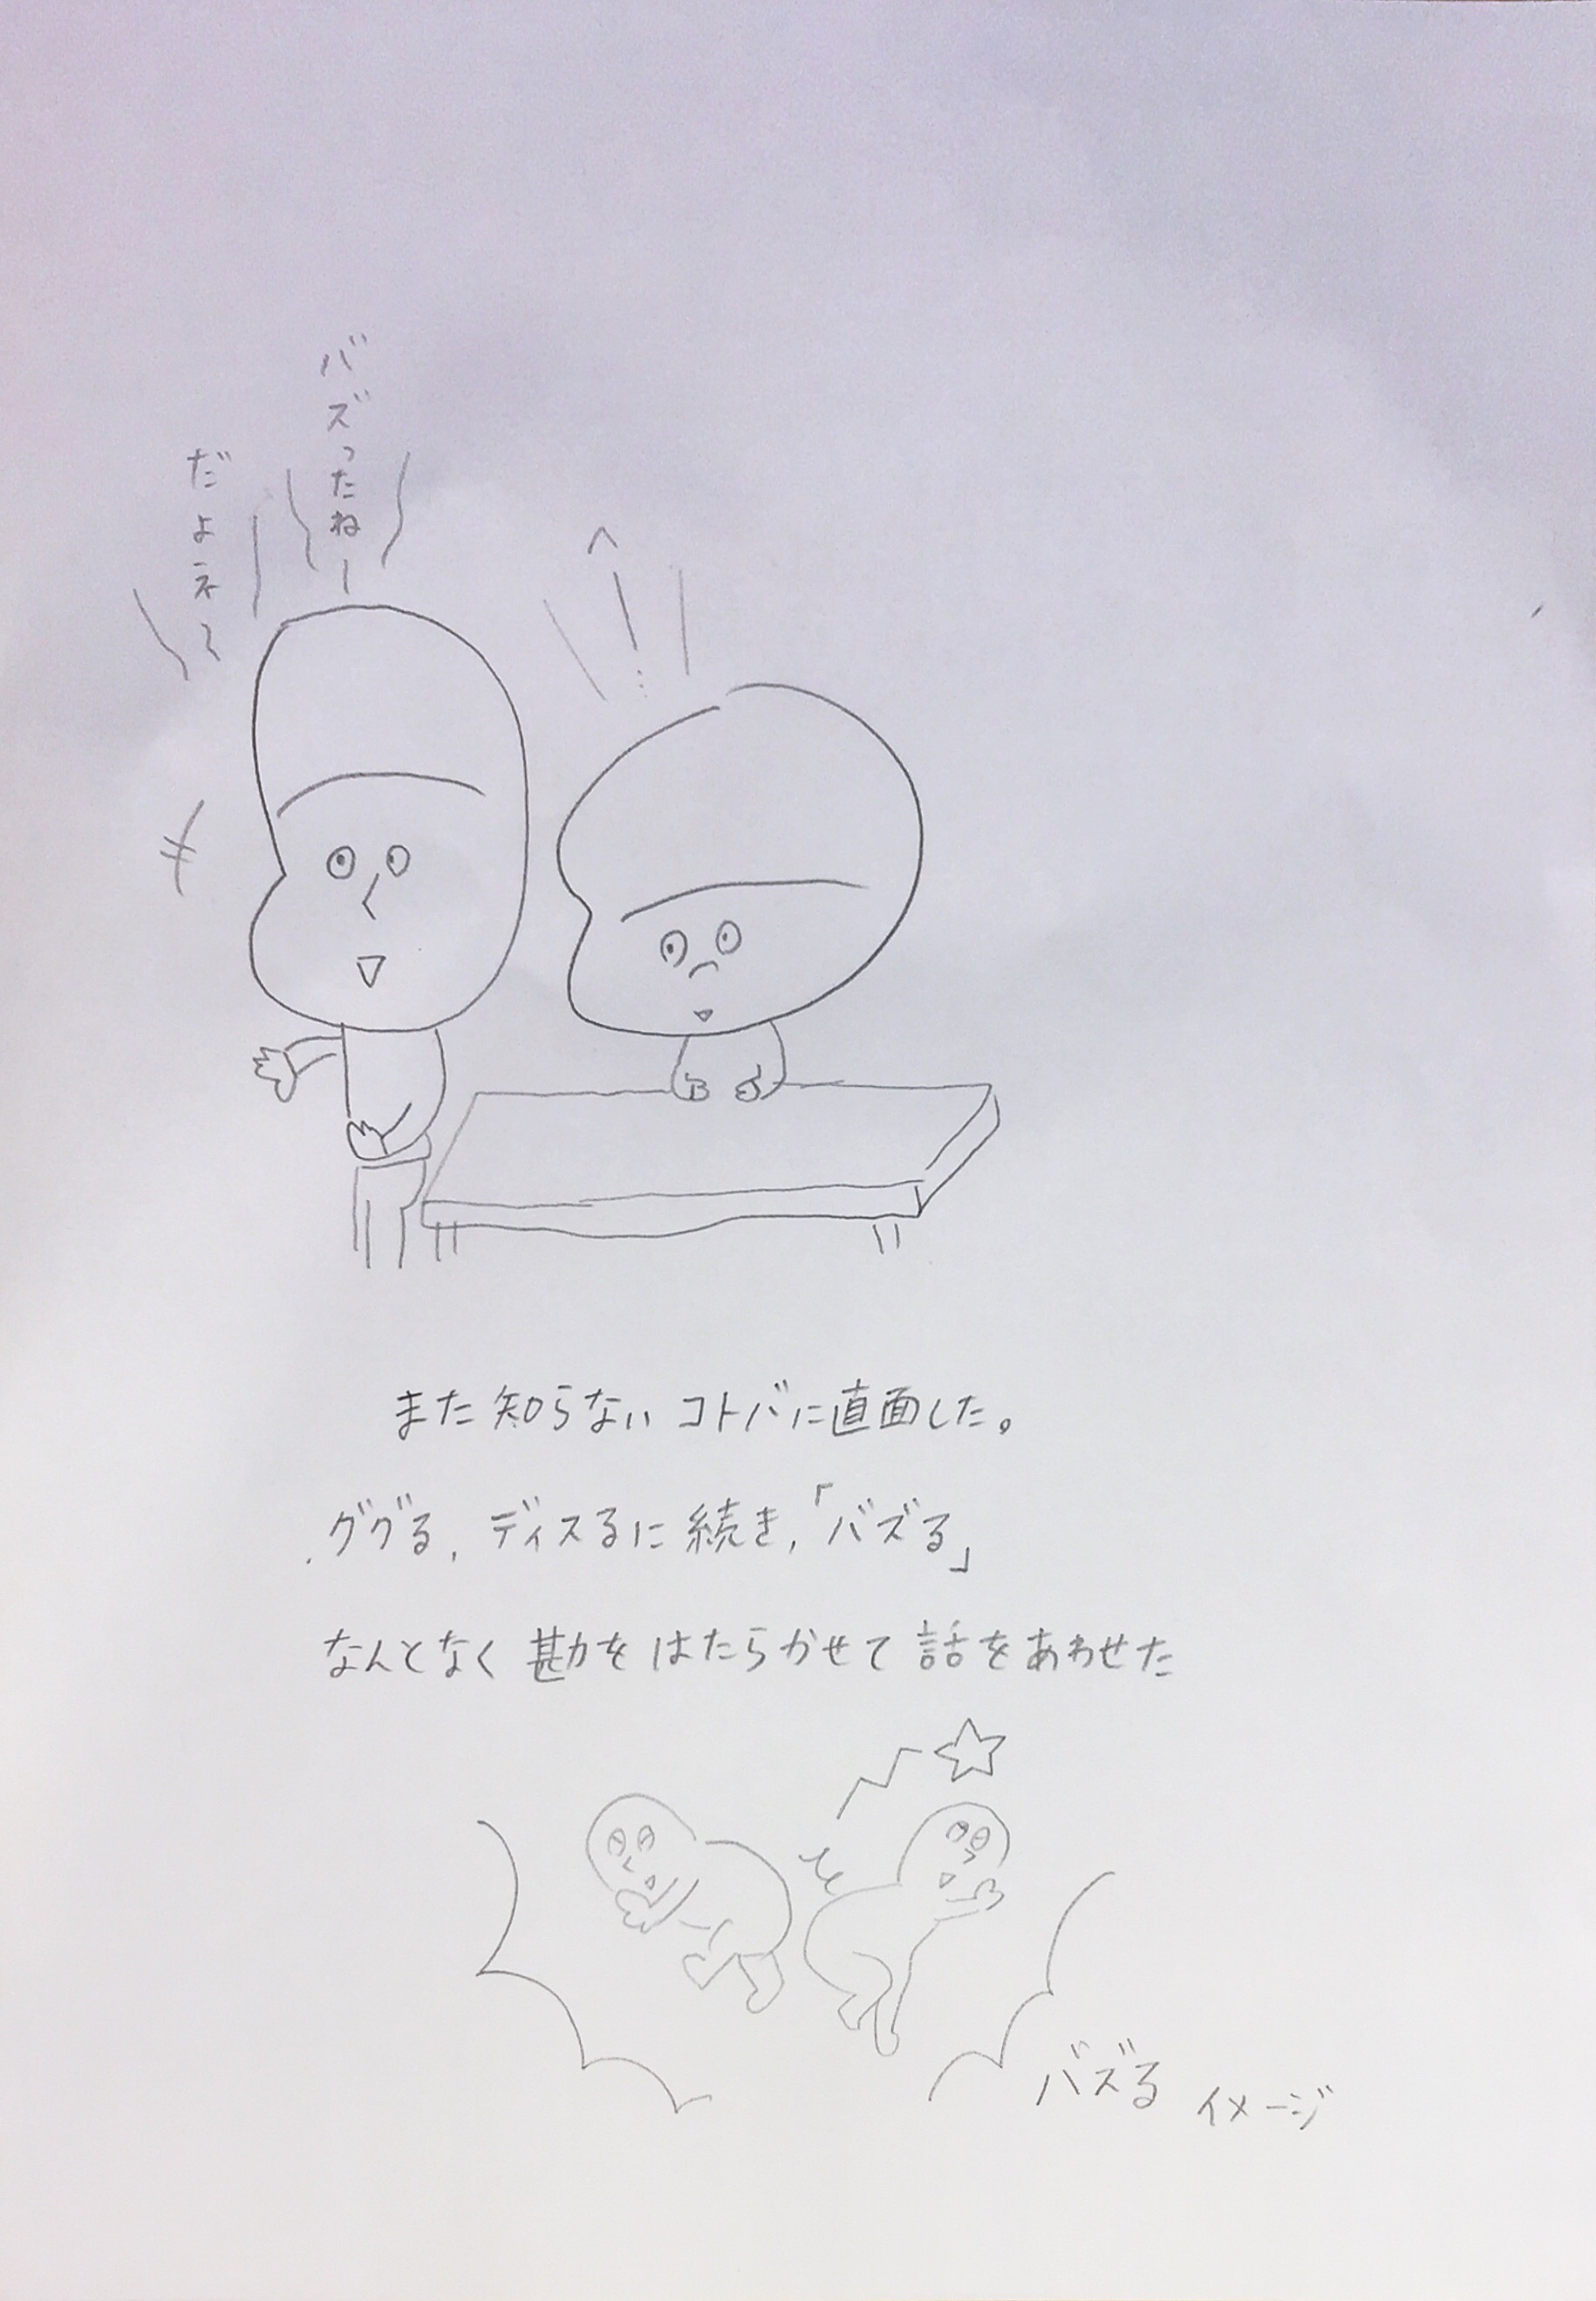 バズったねー
だよネ〜
へー…
また知らないコトバに直面した。
ググる、ディスるに続き、「バズる」
なんとなく勘をはたらかせて話をあわせた
バズるイメージ